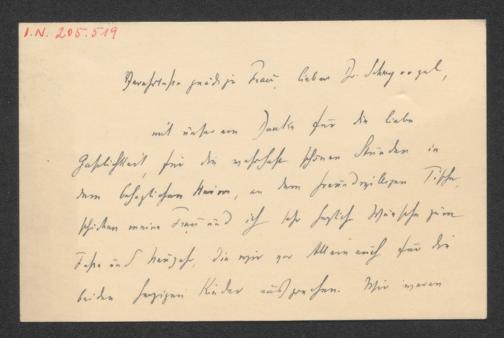 I.N. 205.519
Verehrteste gnädige Frau, lieber Dr.
mit unserem Danke für die liebe
Gastlichkeit, für die wahrhaft schönen Stunden in
dem behaglichen Heim, an dem freundwilligen Tische,
schicken meine Frau und ich sehr herzliche Wünsche zum
Feste und Neujahr, die wir vor Allem auch für die
beiden herzigen Kinder aussprechen. Wir waren